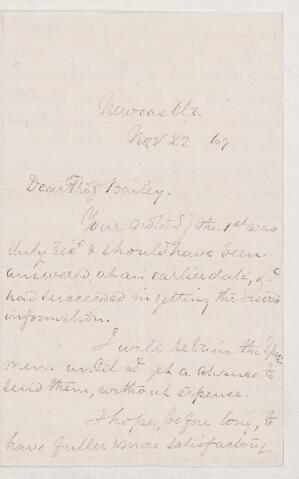 Newcastle.
Nov 22. 67.
Dear Bailey.
Your note of the 1st was
duly rec'd & should have been
answered at an earlier date, if I
had succeeded in getting the desired
information.
I will retain the speci
mens until I get a chance to
send them, without expense.
I hope, before long, to
have fuller & more satisfactory